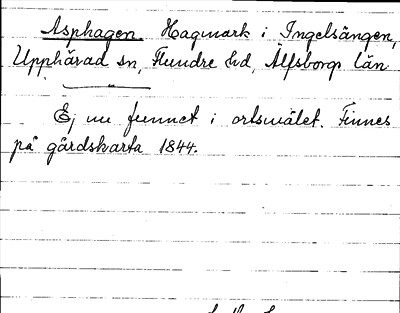 Asphagen Hagmark i Ingelsängen,
Upphärad sn, Flundre hd, Älfsborgs län
Ej nu funnet i ortsmålet. Finnes
på gårdskarta 1844.